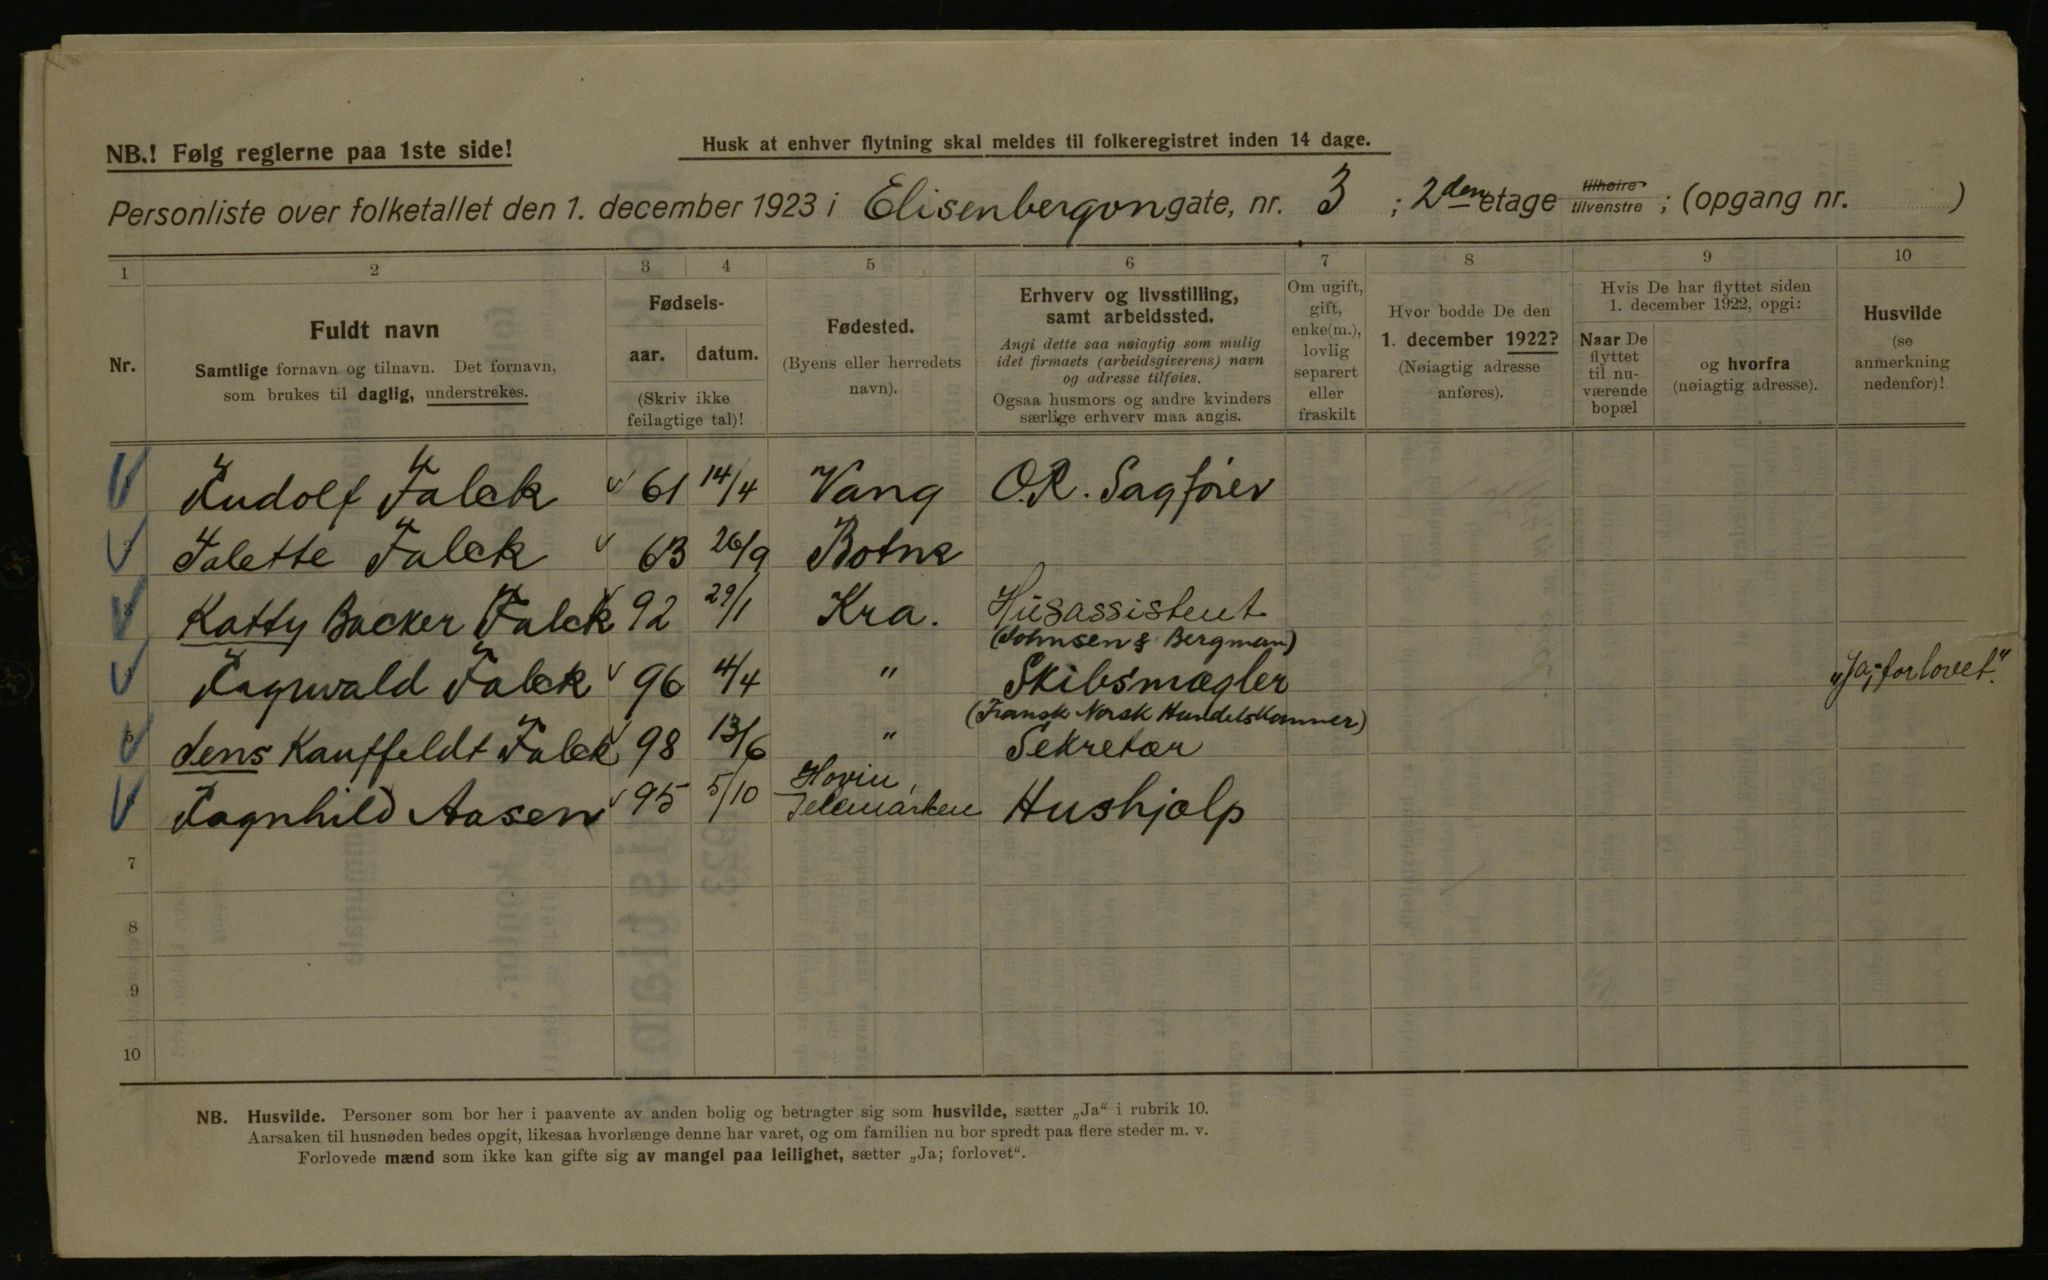 NB.! Følg reglerne paa 1ste side!
Husk at enhver flytning skal meldes til folkeregistret inden 14 dage.
Personliste over folketallet den 1. december 1923 i Elisenbergvn gate, nr. 3 ; 2den etage tilhøire tilvenstre ; (opgang nr. )
1 2 3 4 5 6 7 8 9 10
Nr.
Fuldt navn
Samtlige fornavn og tilnavn. Det fornavn,
som brukes til daglig, understrekes.
Fødsels-
aar. datum.
(Skriv ikke
feilagtige tal)!
Fødested.
(Byens eller herredets
navn).
Erhverv og livsstilling,
samt arbeidssted.
Angi dette saa nøiagtig som mulig
idet firmaets (arbeidsgiverens) navn
og adresse tilføies.
Ogsaa husmors og andre kvinders
særlige erhverv maa angis.
Om ugift,
gift,
enke(m.),
lovlig
separert
eller
fraskilt
Hvor bodde De den
1. december 1922?
(Nøiagtig adresse
anføres).
Hvis De har flyttet siden
1. december 1922, opgi:
Naar De
flyttet
til nu-
værende
bopæl
og hvorfra
(nøiagtig adresse).
Husvilde
(se
anmerkning
nedenfor)!
Rudolf Falck 61 14/4 Vang O.R. Sagfører
Falck 63 26/9 Botne
Katty Backer Falck 92 29/1 Kra. Husassistent
(Johnsen & Bergman)
Ragnvald Falck 96 4/4 " Skibsmægler "Ja; forlovet."
(Fransk Norsk Handelskammer)
Jens Kauffeldt Falck 98 13/6 " Sekretær
Ragnhild Aasen 95 5/10 Hovin, Telemarken Hushjælp
7
8
9
10
NB. Husvilde. Personer som bor her i paavente av anden bolig og betragter sig som husvilde, sætter „Ja“ i rubrik 10.
Aarsaken til husnøden bedes opgit, likesaa hvorlænge denne har varet, og om familien nu bor spredt paa flere steder m. v.
Forlovede mænd som ikke kan gifte sig av mangel paa leilighet, sætter „Ja; forlovet“.